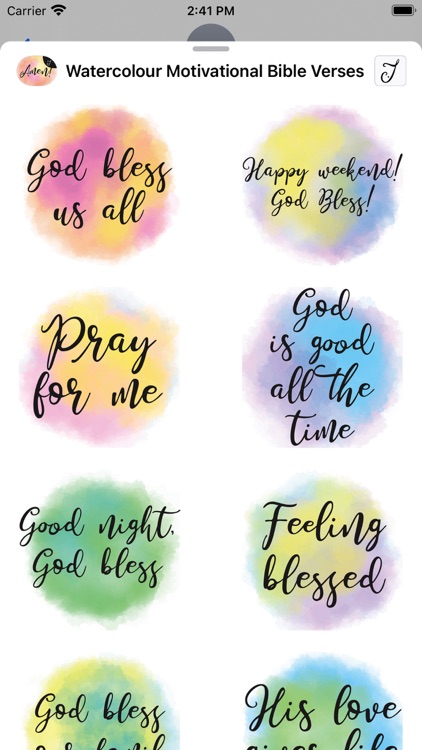 Carrier 2:41 PM
Amen!
Watercolour Motivational Bible Verses
God bless
us all
Happy weekend!
God Bless!
Pray
for me
God
is good
all the
time
Good night,
God bless
Feeling
blessed
God bless
His love